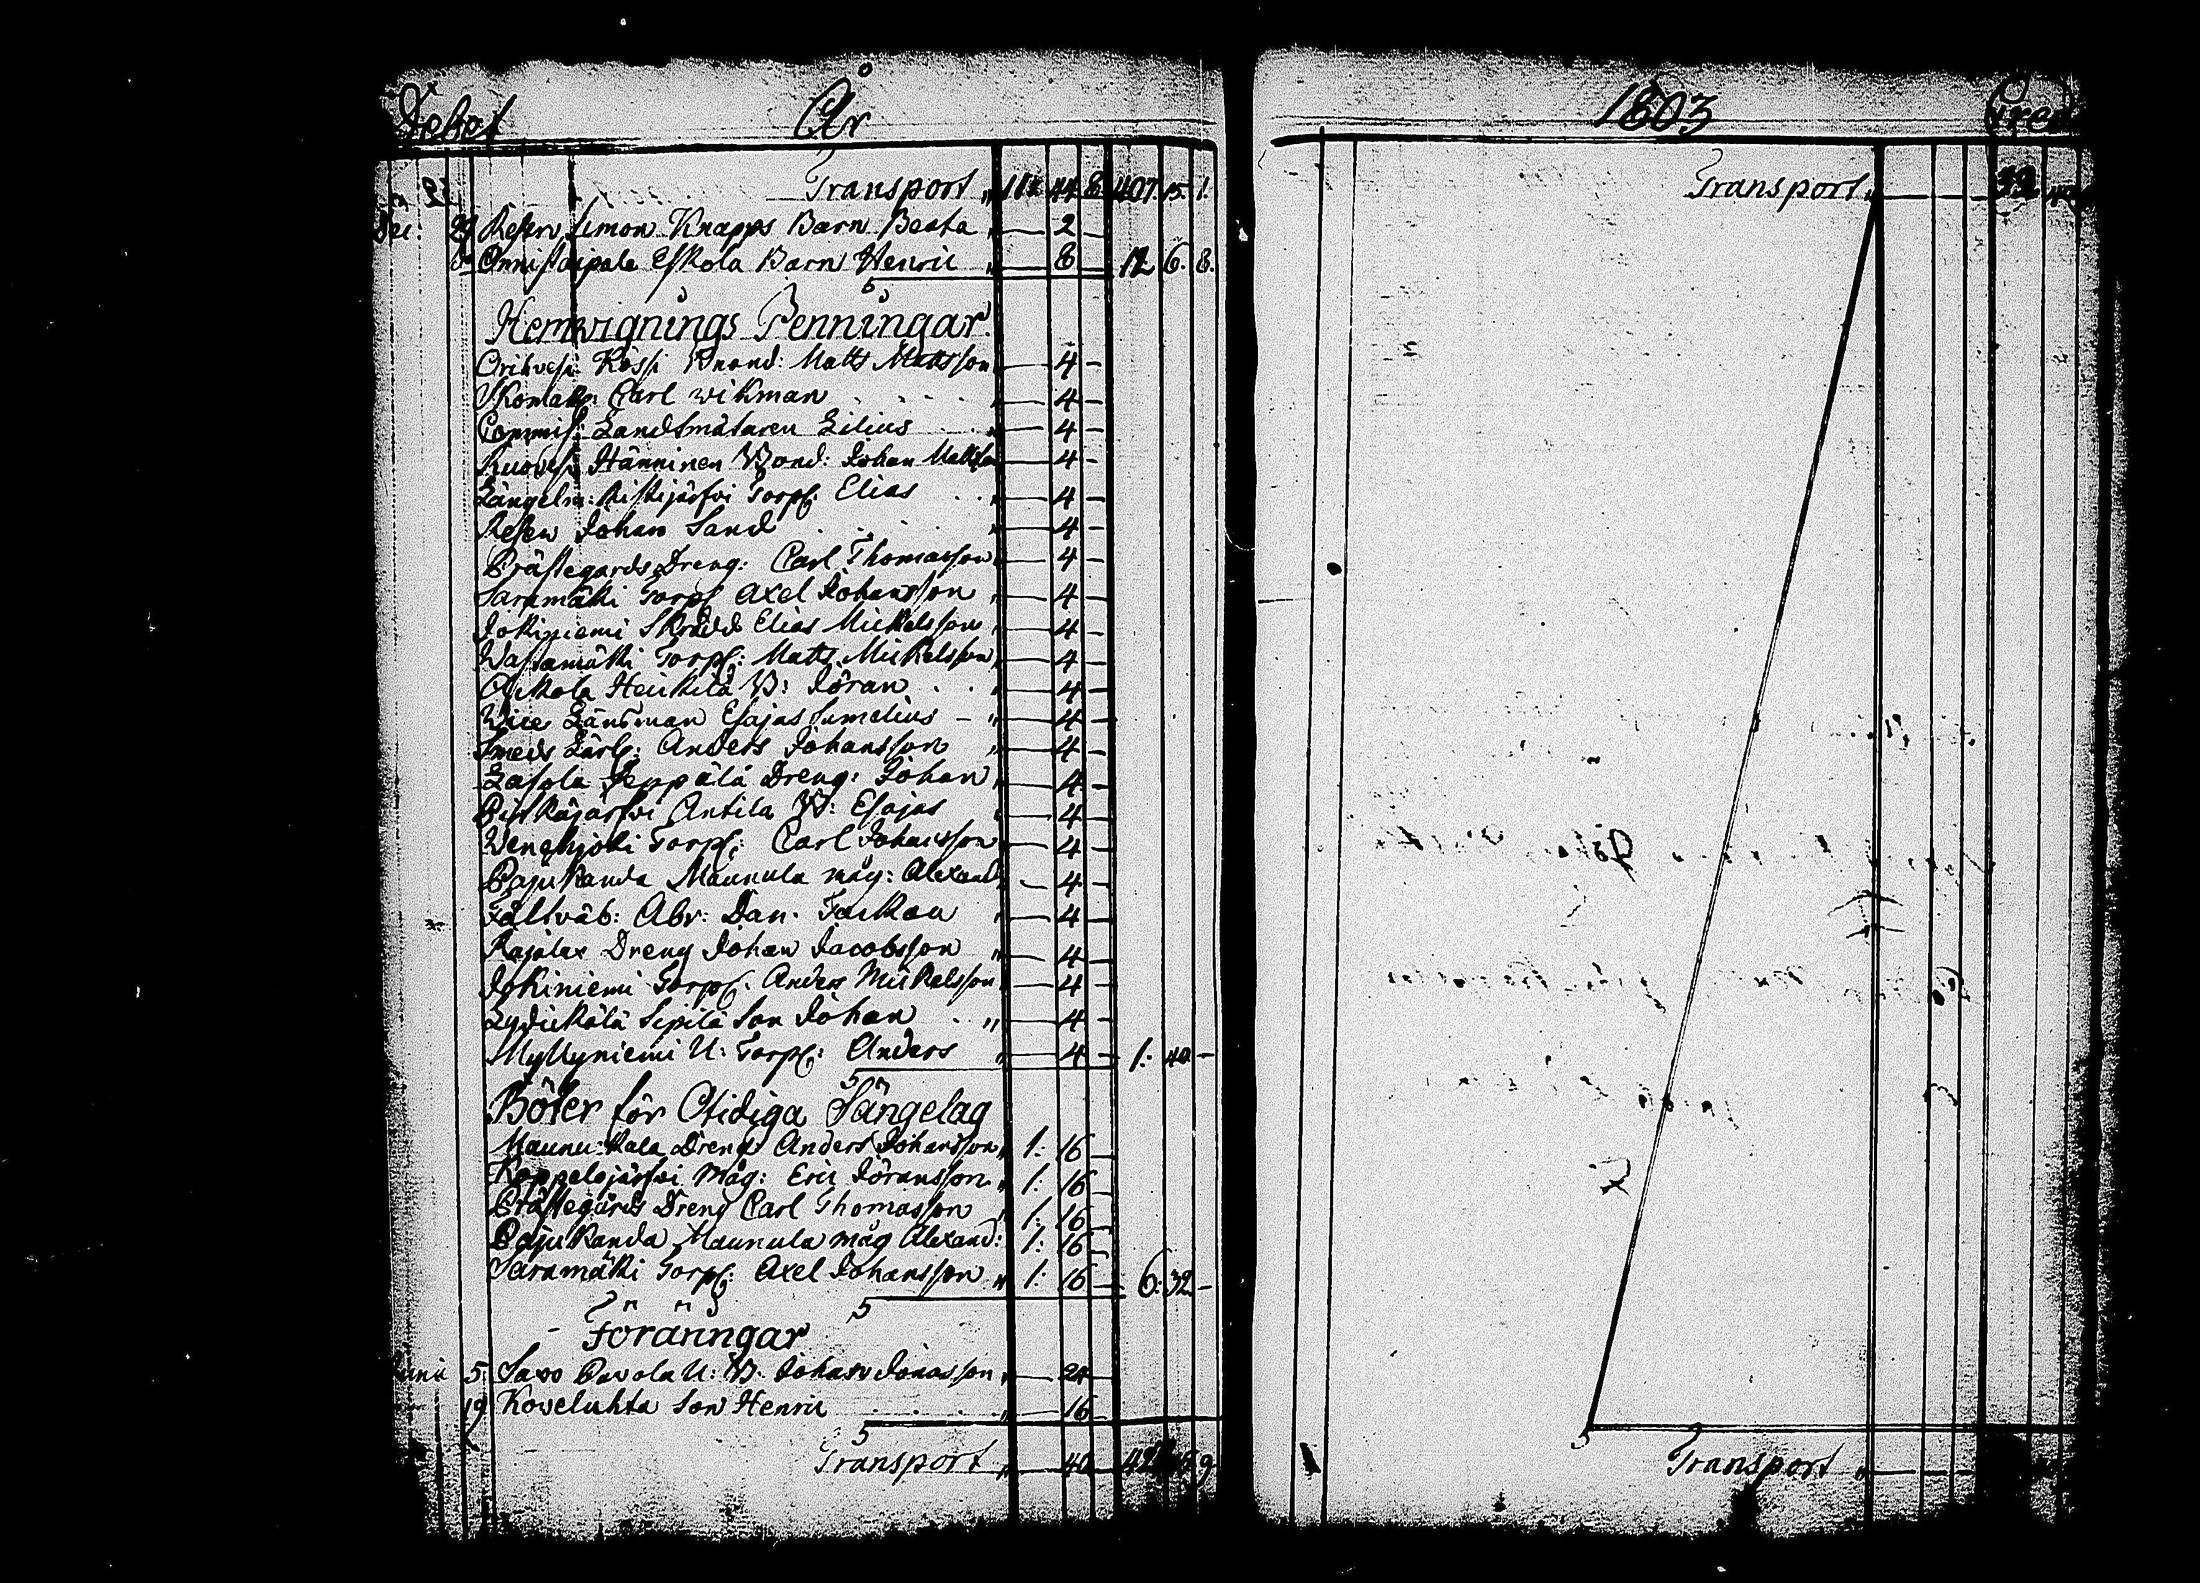 Debet År
Transport „ 11 44 8 407. 15. 1.
29 Reserv Simon Knapps Barn Beata „ — 2 —
Onnistaipale Eskola Barn Henric „ — 8 — 12 6. 8.
Hemvignings Penningar.
Orihvesi Kössi Bond: Matts Mattsson — 4 —
Carl Wikman — 4 —
Commiss: Landtmätaren Lilius — 4 —
Ruovesi Hänninen Bond: Johan Mattsson — 4 —
Längelm: Ristijärfvi Torp: Elias — 4 —
Reserv Johan Sand — 4 —
Prästegårds Dreng: Carl Thomasson — 4 —
Saramäki Torp: Axel Johansson „ — 4 —
Jokiniemi Skrädd Elias Mickelsson „ — 4 —
Torp: Matts Mickelsson „ — 4 —
Heickilä B: Jöran „ — 4 —
Vice Länsman Esajas Sumelius — „ — 4 —
Smeds Lärl: Anders Johansson „ — 4 —
Lasola Seppälä Dreng: Johan „ — 4 —
Antila B: Esajas „ — 4 —
Wenehjoki Torp: Carl Johansson — 4 —
Pajukanda Maunula måg: Alexand — 4 —
Fältväb: Abr: Dan. „ — 4 —
Rajalax Dreng Johan Jacobsson „ — 4 —
Jokiniemi Torp: Anders Mickelsson — 4 —
Lydickälä Sipilä Son Johan „ — 4 —
Myllyniemi U: Torp: Anders „ — 4 — 1: 40 —
Böter för Otidiga Sängelag
Maunu: kala Dreng Anders Johansson „ 1: 16 —
Koppelojärfvi Måg: Eric Jöransson „ 1: 16 —
Prästegårds Dreng Carl Thomasson „ 1: 16 —
Pajukanda Maunula måg Alexand: 1: 16 —
Saramäki Torp: Axel Johansson „ 1: 16 — 6: 32 —
Föräringar
5 Savo Pavola U: B. Johan Jonasson „ — 24 —
19 Koveluhta Son Henric „ — 16 —
Transport „ — 40 —
1803
Transport „ —
Transport „ —